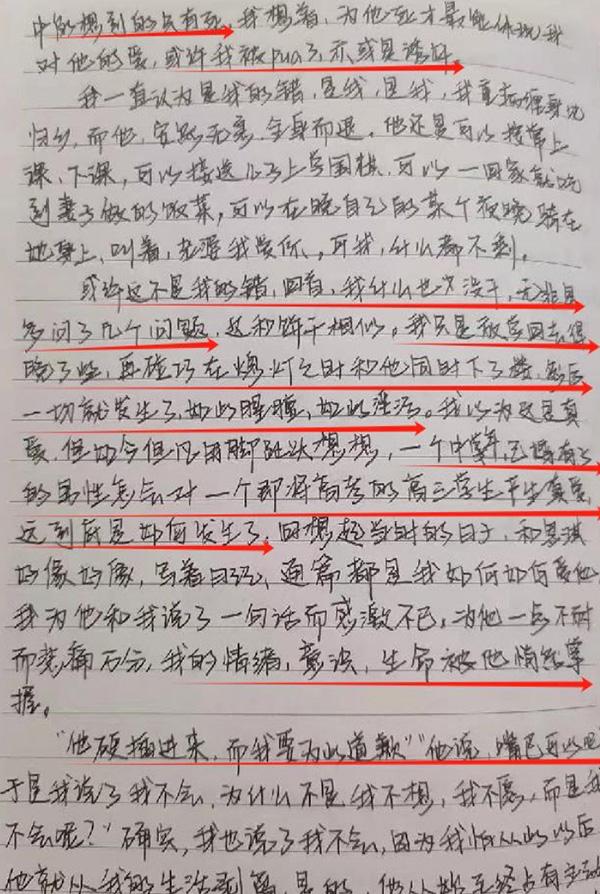 中的想到的只有死。我想着,为他死才最能体现我
对他的爱,或许我被pua了,亦或是诱奸。
我一直认为是我的错,是我,是我,我重病缠身
归乡,而他,安然无恙,全身而退。他还是可以接常上
课、下课,可以接送儿子上学围棋,可以一回家就吃
到妻子做的饭菜,可以在晚自习的某个夜晚骑在
她身上,叫着,老婆我爱你,可我,什么都不剩。
或许这不是我的错,回首,我什么也没干,无非是
多问了几个问题,和饼干相似。我只是教室回去得
晚了些,再碰巧在熄灯之时和他同时下了楼,然后
一切就发生了,如此腥膻,如此淫污。我以为这是真
爱,但如今但凡用脚趾头想想,一个中年,已婚有子
的男性怎会对一个即将高考的高三学生产生真爱
这到底是如何发生了。回想起当时的日子,和思琪
好像好像,写着日记,通篇都是我如何如何爱他,
我为他和我说了一句话而感激不已,为他一点不耐
而悲痛万分,我的情绪,意识,生命被他悄然掌
握。
“他硬插进来,而我要为此道歉”“他说,嘴巴可以吧
于是我说了我不会,为什么不是我不想,我不愿,而是我
不会呢?”确实,我也说了我不会,因为我怕从此以后
他就从我的生活剥离,是的